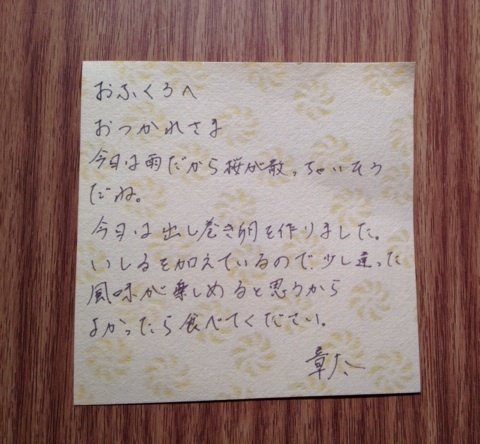 おふくろへ
おつかれさま
今日は雨だから桜が散っちゃいそう
だね。
今日は出し巻き卵を作りました。
いしるを加えているので少し違った
風味が楽しめると思うから
よかったら食べてください。
章太